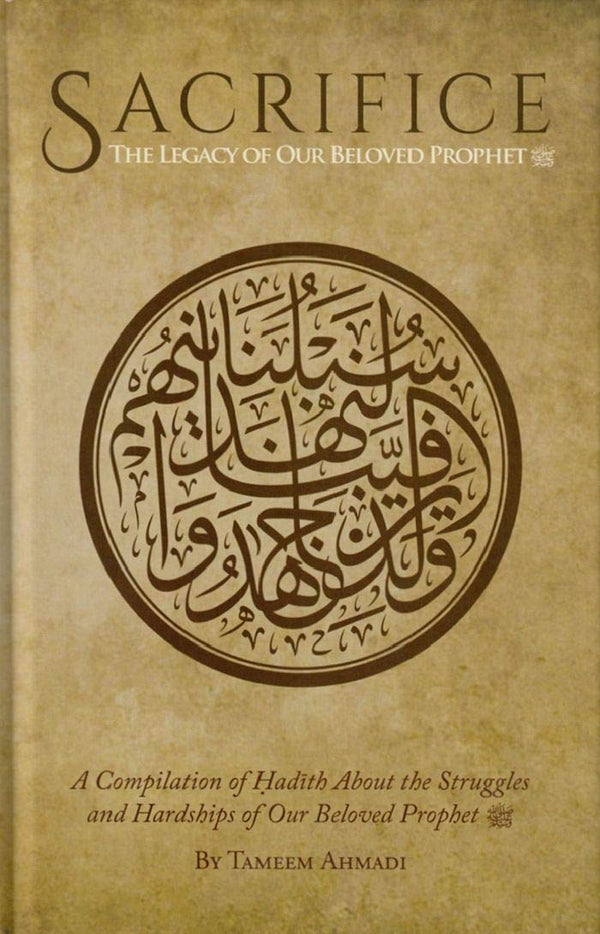 SACRIFICE
THE LEGACY OF OUR BELOVED PROPHET ﷺ
والذين جهدوا
فينا لنهدينهم
سبلنا
A Compilation of Ḥadīth About the Struggles
and Hardships of Our Beloved Prophet ﷺ
BY TAMEEM AHMADI